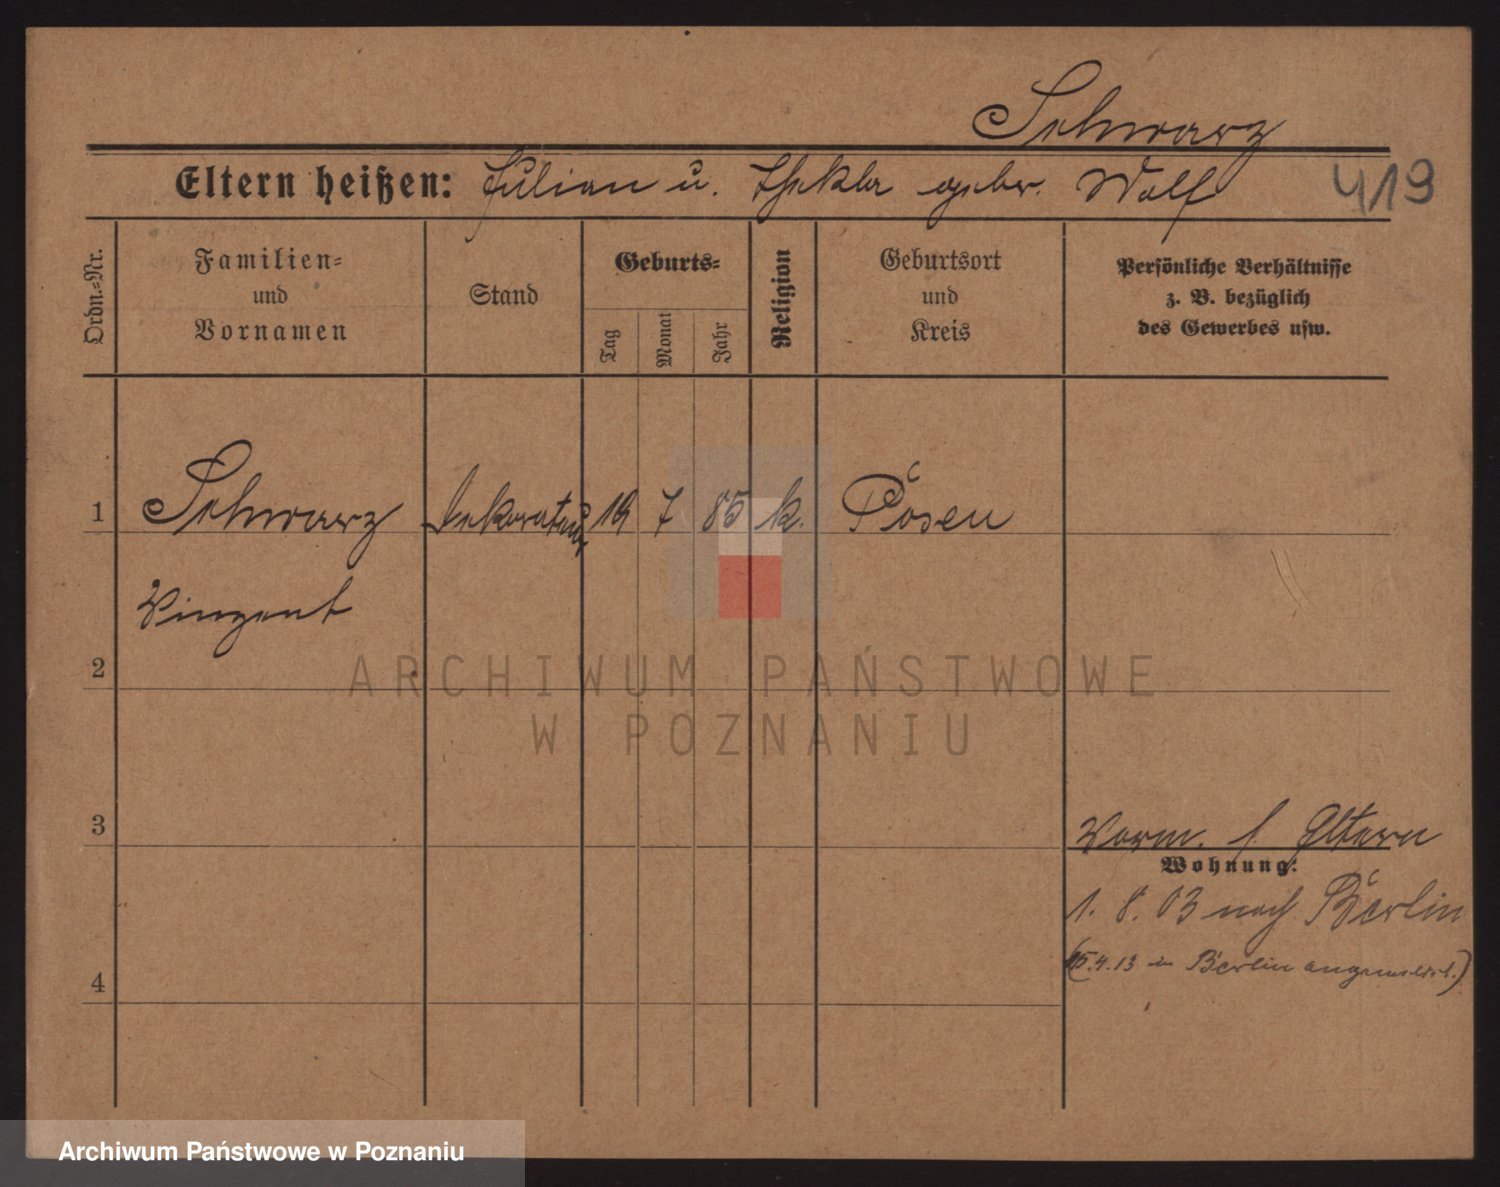 Schwarz
Eltern heißen: Julian u. Thekla gebor. Wolf
419
Ordn.=Nr.
Familien=
und
Vornamen
Stand
Geburts=
Tag
Monat
Jahr
Religion
Geburtsort
und
Kreis
Persönliche Verhältnisse
z. B. bezüglich
des Gewerbes usw.
1
Schwarz Dekorateur 19 7 85 k. Posen
Vinzent
2
ARCHIWUM PAŃSTWOWE
W POZNANIU
3
Vorm. f. Eltern
Wohnung:
1. 8. 03 nach Berlin
4
(15.4.13 in Berlin angemeldet.)
Archiwum Państwowe w Poznaniu